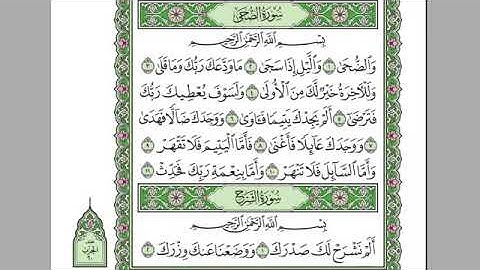 سُورَةُ الضُّحَىٰ
بِسْمِ اللَّهِ الرَّحْمَٰنِ الرَّحِيمِ
وَالضُّحَىٰ ١ وَاللَّيْلِ إِذَا سَجَىٰ ٢ مَا وَدَّعَكَ رَبُّكَ وَمَا قَلَىٰ ٣
وَلَلْآخِرَةُ خَيْرٌ لَّكَ مِنَ الْأُولَىٰ ٤ وَلَسَوْفَ يُعْطِيكَ رَبُّكَ
فَتَرْضَىٰ ٥ أَلَمْ يَجِدْكَ يَتِيمًا فَآوَىٰ ٦ وَوَجَدَكَ ضَالًّا فَهَدَىٰ
٧ وَوَجَدَكَ عَائِلًا فَأَغْنَىٰ ٨ فَأَمَّا الْيَتِيمَ فَلَا تَقْهَرْ ٩
وَأَمَّا السَّائِلَ فَلَا تَنْهَرْ ١٠ وَأَمَّا بِنِعْمَةِ رَبِّكَ فَحَدِّثْ ١١
سُورَةُ الشَّرْحِ
بِسْمِ اللَّهِ الرَّحْمَٰنِ الرَّحِيمِ
أَلَمْ نَشْرَحْ لَكَ صَدْرَكَ ١ وَوَضَعْنَا عَنكَ وِزْرَكَ ٢